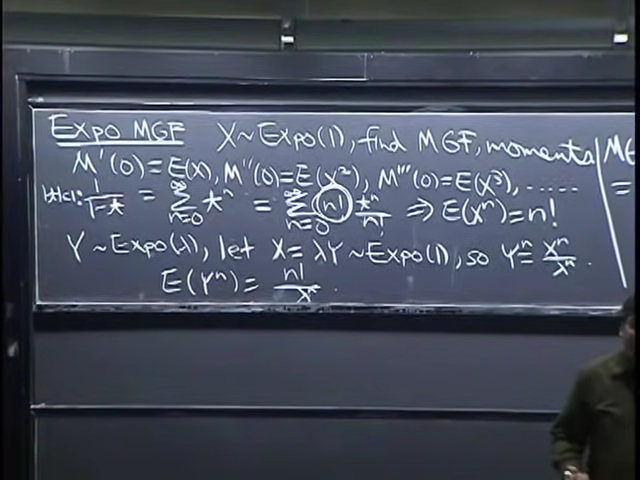 Expo MGF X ~ Expo(1), find MGF, moments
M'(0) = E(X), M''(0) = E(X²), M'''(0) = E(X³), .....
|t|<1: 1/(1-t) = Σ_{n=0}^∞ tⁿ = Σ_{n=0}^∞ n! tⁿ/n! ⇒ E(Xⁿ) = n!
Y ~ Expo(λ), let X = λY ~ Expo(1), so Yⁿ = Xⁿ/λⁿ.
E(Yⁿ) = n!/λⁿ.